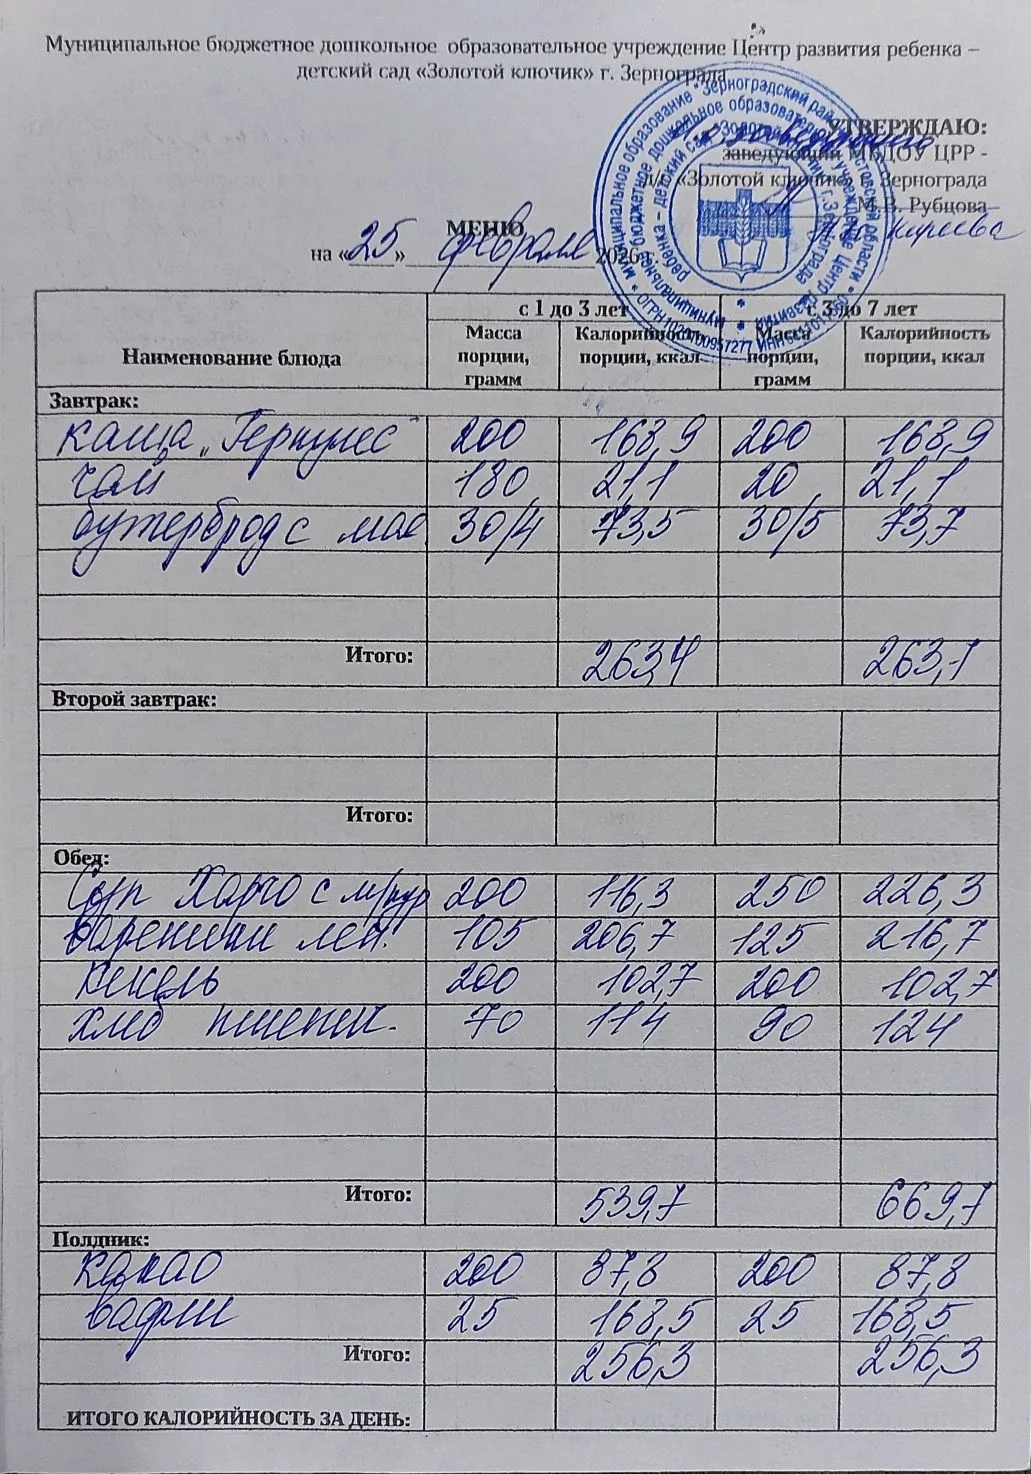 Муниципальное бюджетное дошкольное образовательное учреждение Центр развития ребенка –
детский сад «Золотой ключик» г. Зернограда
УТВЕРЖДАЮ:
заведующий МБДОУ ЦРР -
д/с «Золотой ключик» г. Зернограда
М.В. Рубцова
МЕНЮ
на «25» февраля 2026 г.
с 1 до 3 лет с 3 до 7 лет
Наименование блюда Масса порции, грамм Калорийность порции, ккал Масса порции, грамм Калорийность порции, ккал
Завтрак:
каша „Геркулес" 200 168,9 200 168,9
чай 180 21,1 20 21,1
бутерброд с мас 30/4 73,5 30/5 73,7
Итого: 263,4 263,7
Второй завтрак:
Итого:
Обед:
Суп Харчо с м/кур 200 116,3 250 226,3
вареники лен. 105 206,7 125 216,7
кисель 200 102,7 200 102,7
хлеб пшенич. 70 114 90 124
Итого: 539,7 669,7
Полдник:
какао 200 87,8 200 87,8
вафли 25 168,5 25 168,5
Итого: 256,3 256,3
ИТОГО КАЛОРИЙНОСТЬ ЗА ДЕНЬ: